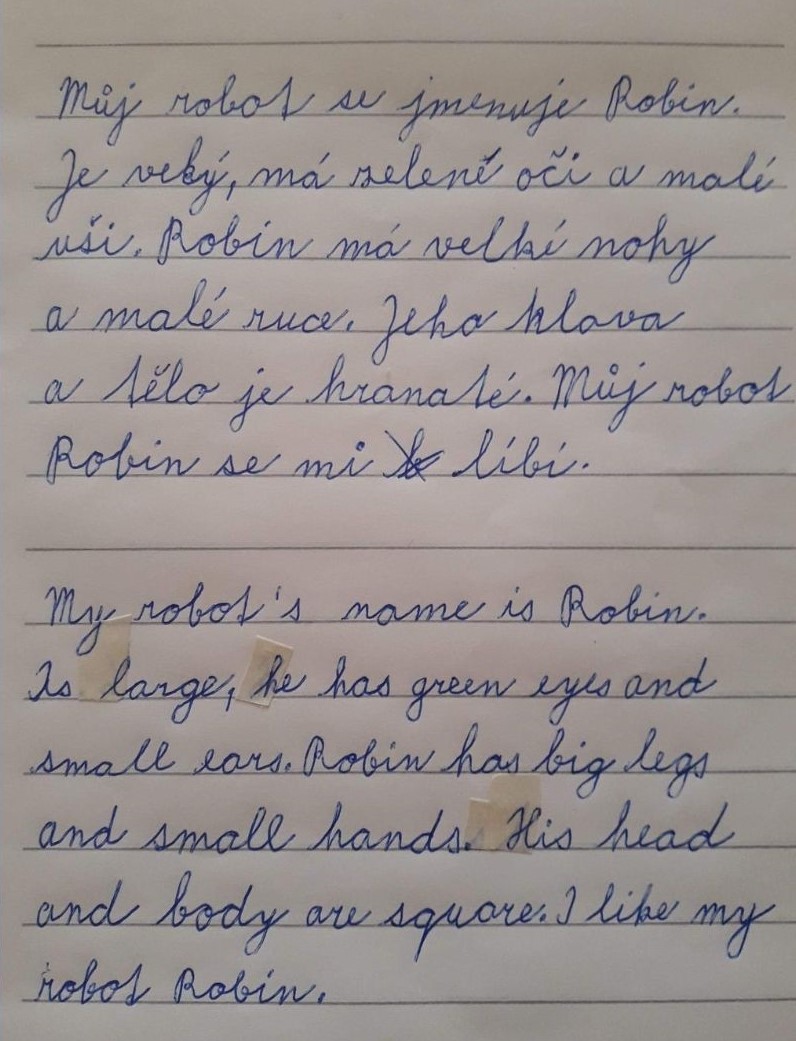 Můj robot se jmenuje Robin.
Je veký, má zelené oči a malé
uši. Robin má velké nohy
a malé ruce. Jeho hlava
a tělo je hranaté. Můj robot
Robin se mi líbí.
My robot's name is Robin.
Is large, he has green eyes and
small ears. Robin has big legs
and small hands. His head
and body are square. I like my
robot Robin.